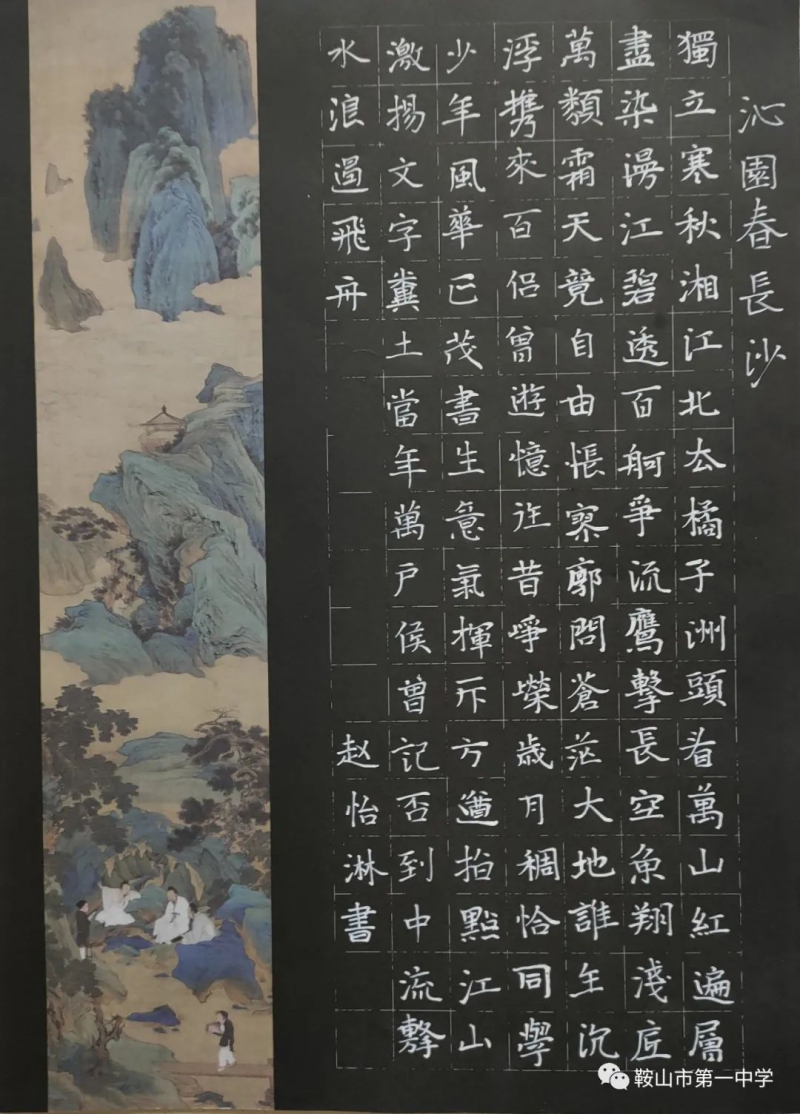 沁園春長沙
獨立寒秋湘江北去橘子洲頭看萬山紅遍層
盡染漫江碧透百舸爭流鷹擊長空魚翔淺底
萬類霜天競自由悵寥廓問蒼茫大地誰主沉
浮携來百侶曾遊憶往昔崢嶸歲月稠恰同學
少年風華正茂書生意氣揮斥方遒指點江山
激揚文字糞土當年萬戶侯曾記否到中流擊
水浪遏飛舟
赵怡淋書
鞍山市第一中学